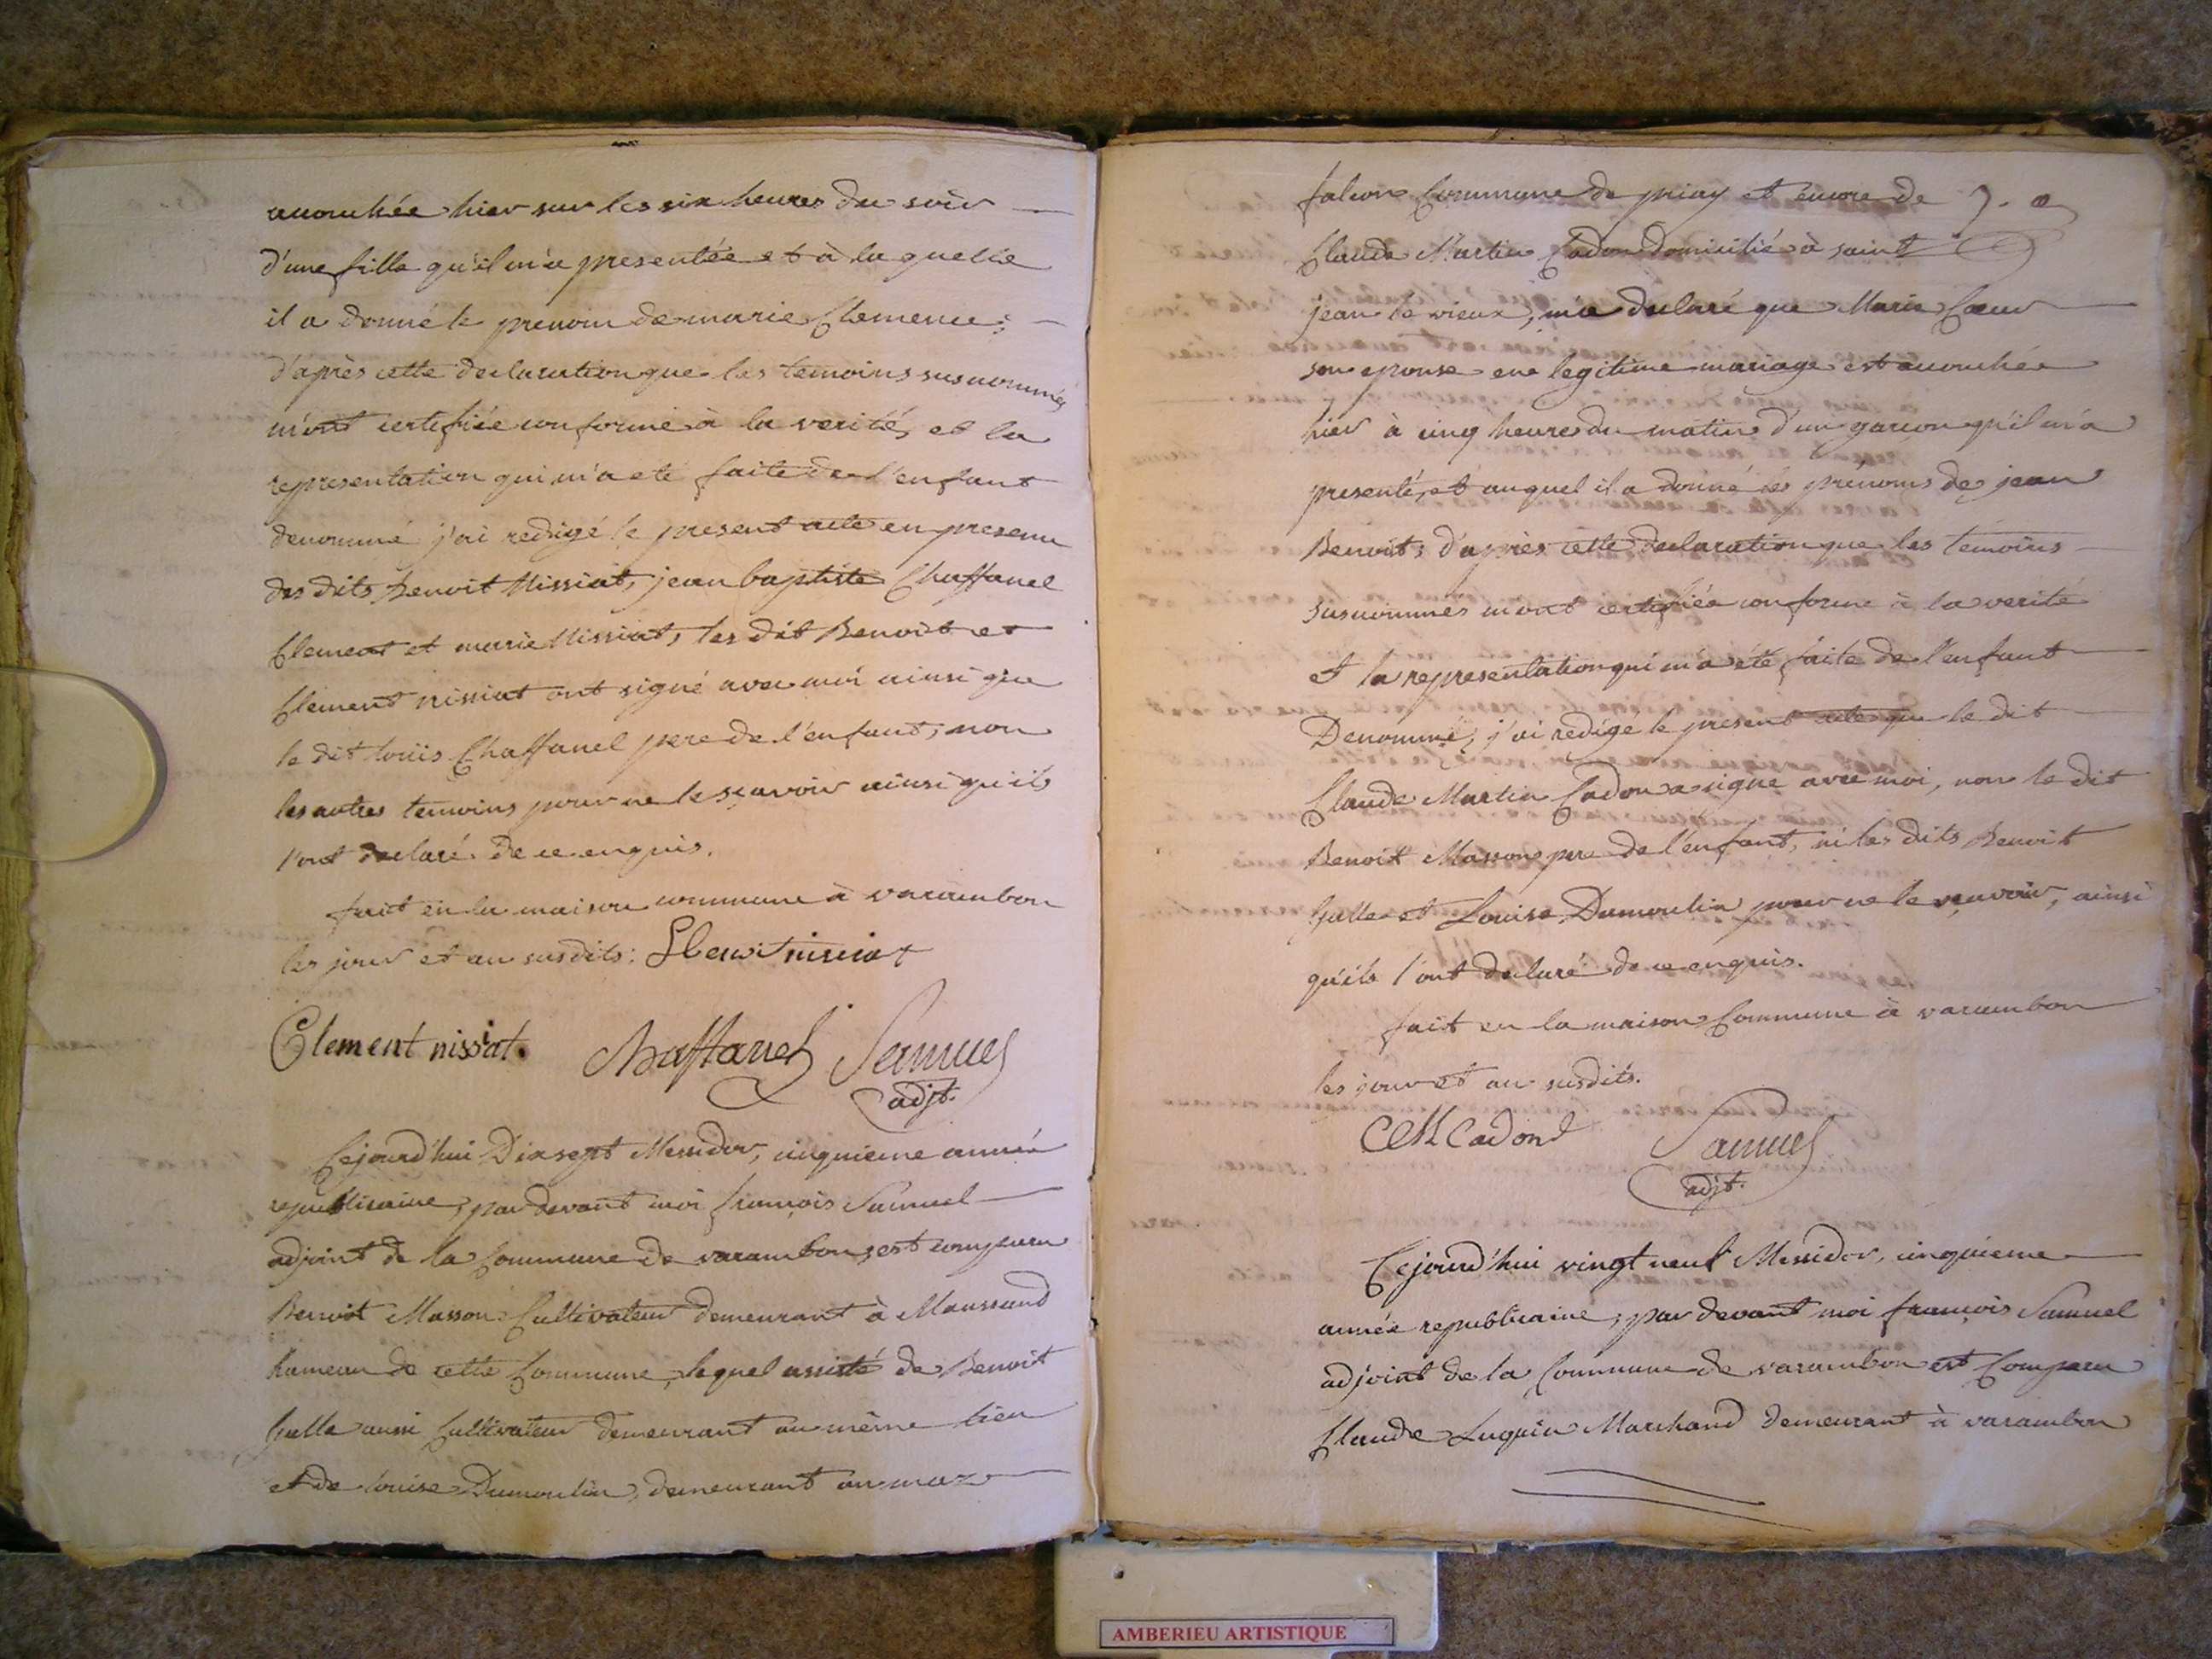 accouchée hier sur les six heures du soir
d'une fille qu'il m'a presentée et à laquelle
il a donné le prenom de marie Clemence;
d'après cette declaration que les temoins susnommés
m'ont certifiée conforme à la verité, et la
representation qui m'a eté faite de l'enfant
denommé j'ai redigé le present acte en presence
des dits Benoit Nissiat, jean baptiste Chaffanel
Clement et marie Nissiat, les dit Benoit et
Clement nissiat ont signé avec moi ainsi que
le dit louis Chaffanel pere de l'enfant, non
les autres temoins pour ne le sçavoir ainsi qu'ils
l'ont declaré de ce enquis.
fait en la maison commune à varambon
les jour et an susdits: nissiat
Clement nissiat. Chaffanel Samuel
adjt.
Cejourd'hui Dix sept Messidor, cinquieme année
republicaine, par devant moi françois Samuel
adjoint de la Commune de varambon, est comparu
Benoit Masson Cultivateur demeurant à Maussand
hameau de cette Commune, lequel assisté de Benoit
aussi Cultivateur demeurant au même lieu
et de louise Dumoulin, demeurant au maz
falcon Commune de priay et encore de
Claude Martin Cadon domicilié à saint
jean le vieux, m'a declaré que Marie Coeur
son epouse en legitime mariage est accouchée
hier à cinq heures du matin d'un garçon qu'il m'a
presenté, et auquel il a donné les prénoms de jean
Benoit; d'après cette declaration que les témoins
susnommés m'ont certifiée conforme à la verité
et la representation qui m'a été faite de l'enfant
Denommé, j'ai redigé le present acte que le dit
Claude Martin Cadon a signé avec moi, non le dit
Benoit Masson pere de l'enfant, ni les dits Benoit
et Louise Dumoulin pour ne le sçavoir, ainsi
qu'ils l'ont declaré de ce enquis.
fait en la maison Commune à varambon
les jour et an susdits.
CM Cadond Samuel
adjt.
Cejourd'hui vingt neuf Messidor, cinquieme
année republicaine, par devant moi françois Samuel
adjoint de la Commune de varambon est Comparu
Claude Luquin Marchand demeurant à varambon
AMBERIEU ARTISTIQUE